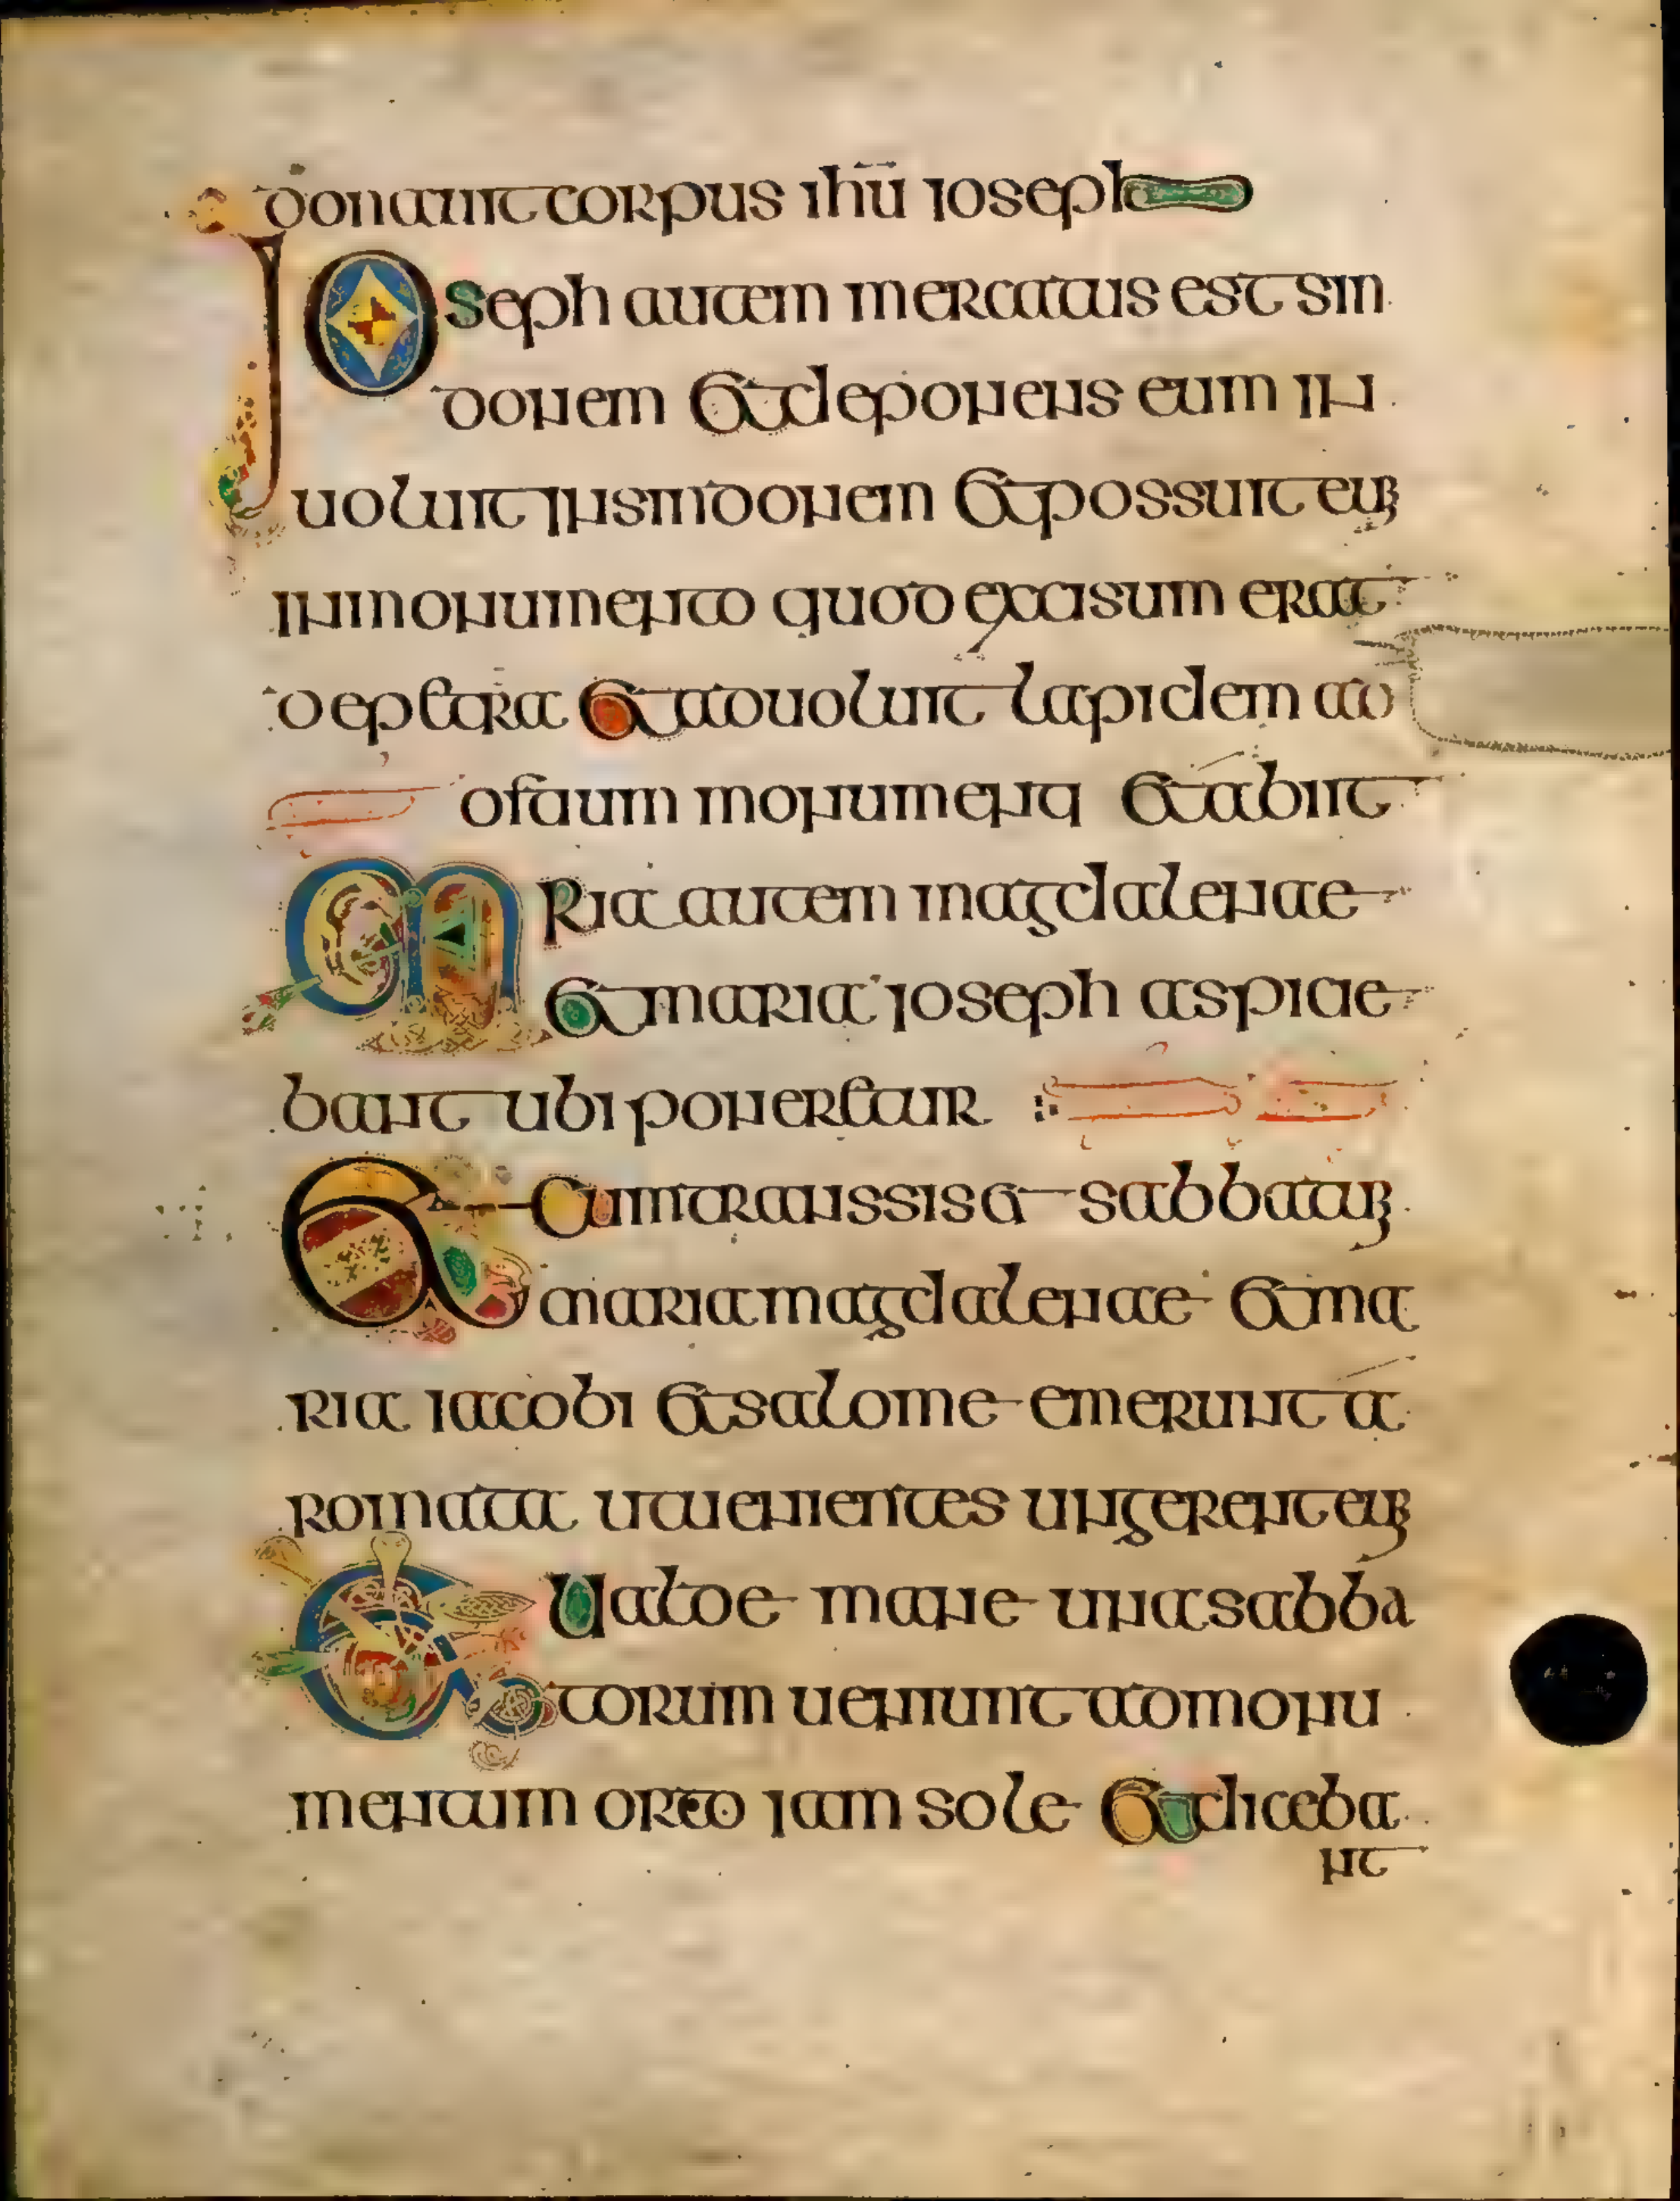 donauit corpus ihū ioseph
Ioseph autem mercatus est sin
donem et deponens eum in
uoluit insindonem et possuit eum
inmonumento quod excisum erat
depetra et aduoluit lapidem ad
ofcium monumenti et abiit
Maria autem magdalenae
et maria ioseph aspicie
bant ubi poneretur
Et cum transsisset sabbatum
maria magdalenae et ma
ria iacobi et salome emerunt a
romata ut uenientes ungerent eum
Et ualde mane una sabba
torum ueniunt admonu
mentum orto iam sole et diceba
nt